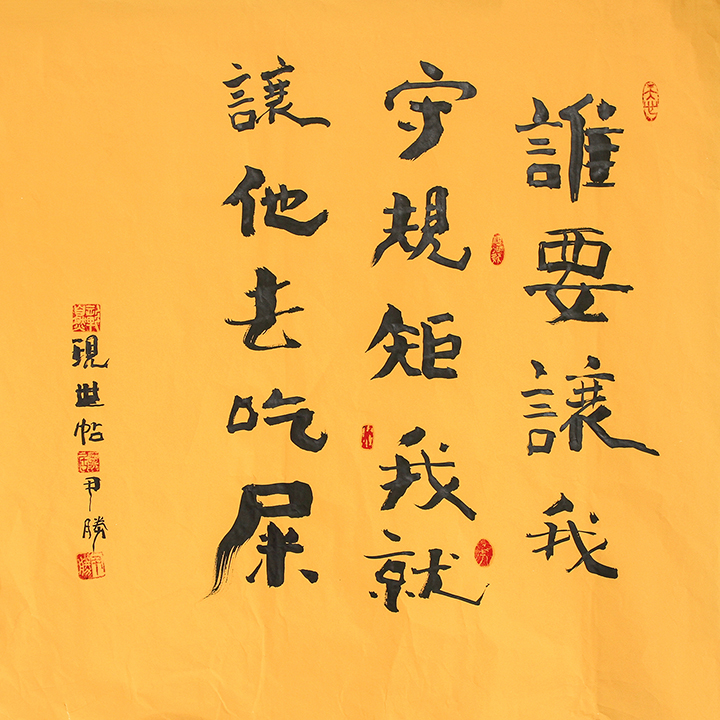 誰要讓我
守規矩我就
讓他去吃屎
現世帖
尹勝